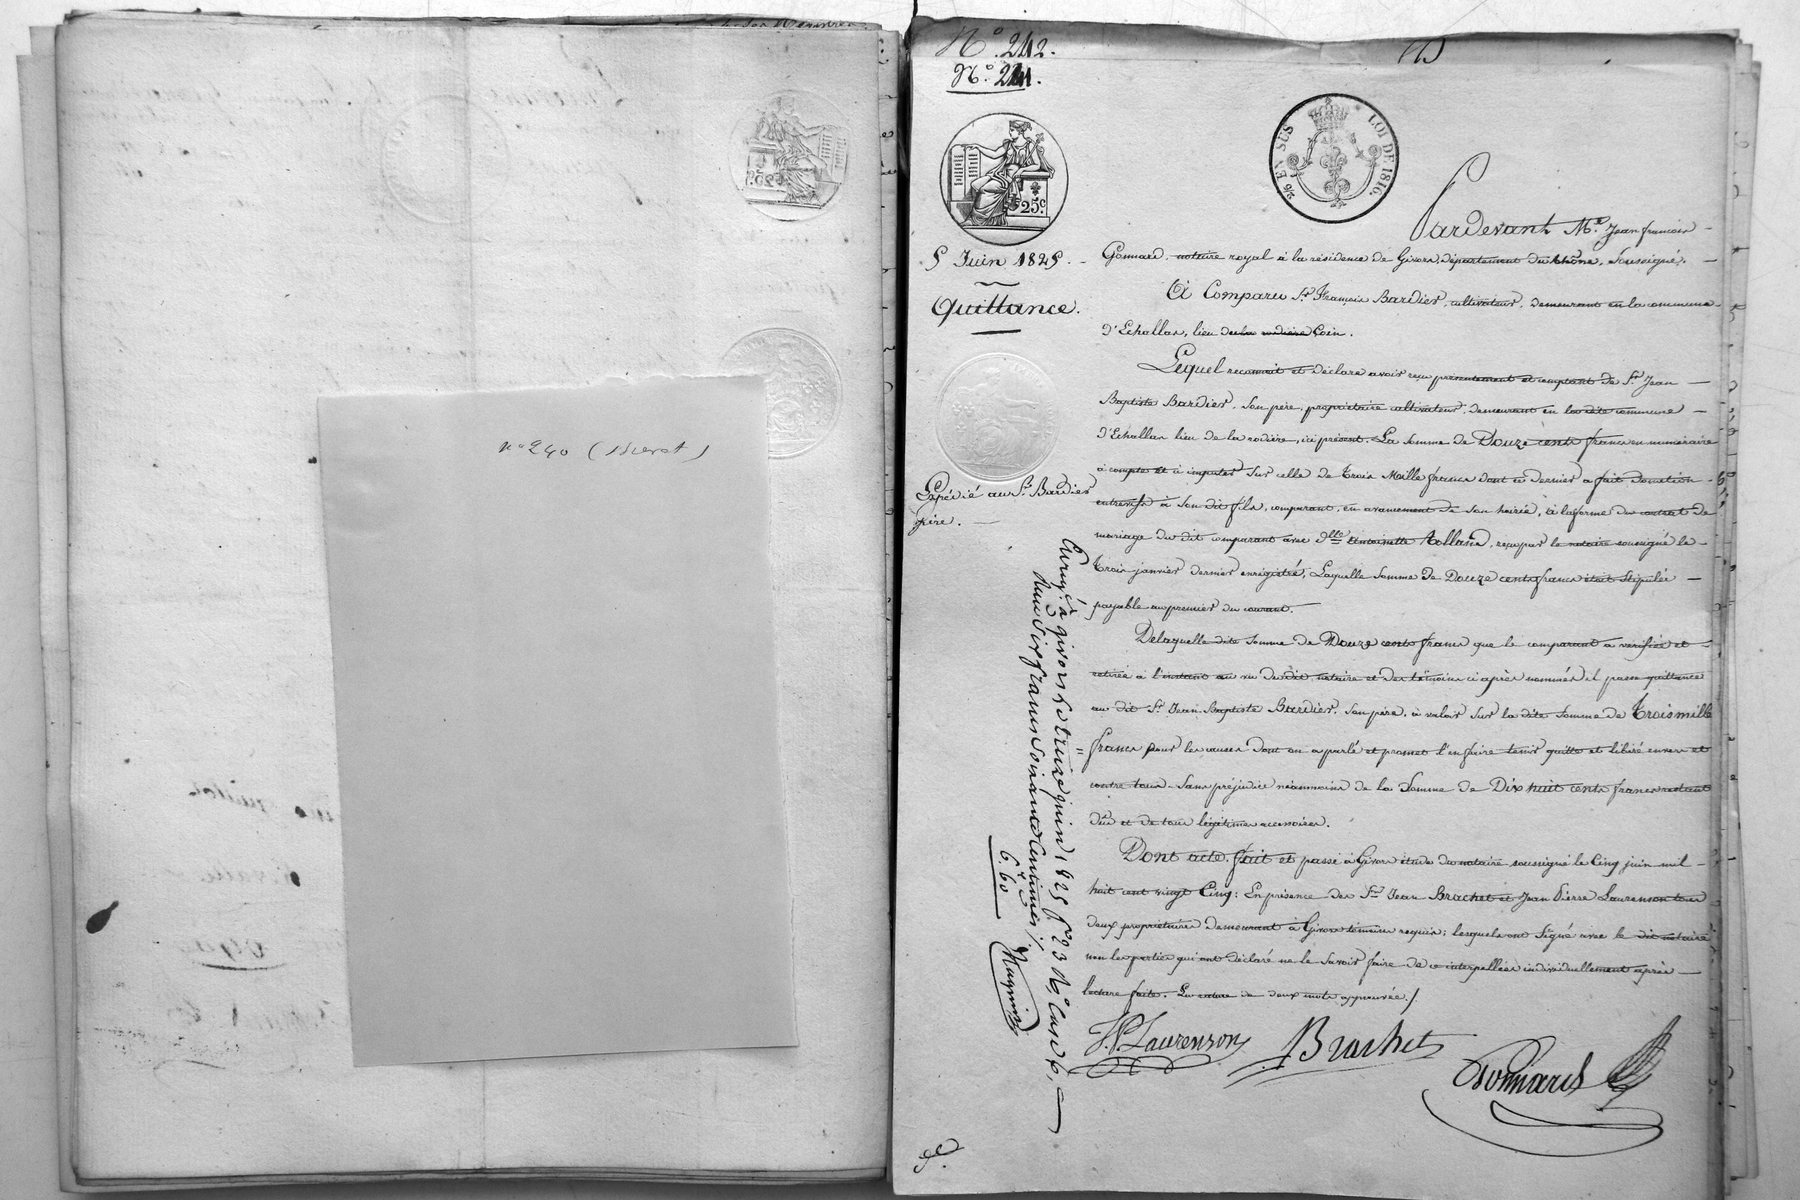 n° 240 (Brevet)
N° 242.
N° 241.
2/6 EN SUS LOI DE 1816.
25c
5 Juin 1825.
Quittance.
Expédié au Sr. Bardier
père.
Pardevant Me. Jean francois
Gonnard, notaire royal à la résidence de Givors, département du rhône, soussigné.
A Comparu Sr. François Bardier, cultivateur, demeurant en la commune
d'Echallas, lieu de la rodière Coin.
Lequel reconnait et déclare avoir reçu présentement et comptant de Sr. Jean
Baptiste Bardier, son père, propriétaire cultivateur, demeurant en la dite commune
d'Echallas lieu de la rodière, ici présent. La somme de Douze cents francs en numéraire
à compte et à imputer sur celle de Trois Mille francs dont ce dernier a fait donation
entrevifs à son dit fils, comparant, en avancement de son hoirie, à la forme du contrat de
mariage du dit comparant avec dlle Antoinette Alland, reçu par le notaire soussigné le
trois janvier dernier enrégistré, Laquelle somme de Douze cents francs était stipulée
payable au premier du courant.
De laquelle dite somme de Douze cents francs que le comparant a verifiée et
retirée à l'instant au vu du dit notaire et des témoins ci après nommés il passe quittance
au dit Sr. Jean Baptiste Bardier, son père, à valoir sur la dite somme de Trois mille
francs pour les causes dont on a parlé et promet l'en faire tenir quitte et libéré envers et
contre tous. Sans préjudice néanmoins de la Somme de Dix huit cents francs restant
dûs et de tous légitimes accessoires.
Dont acte, fait et passé à Givors étude du notaire soussigné le Cinq juin mil
huit cent vingt Cinq: En présence des Srs Jean Brachet et Jean Pierre Laurenson tous
deux propriétaires demeurant à Givors témoins requis; lesquels ont Signé avec le dit notaire
non les parties qui ont déclaré ne le Savoir faire de ce interpellées individuellement après
lecture faite. La rature de deux mots approuvée./
J.P. Laurenson Brachet
Gonnard
Enregé. à givors le treize juin 1825 fo 23 Ro Case 6,
Reçu Six francs Soixante Centimes /.
6.f 60c